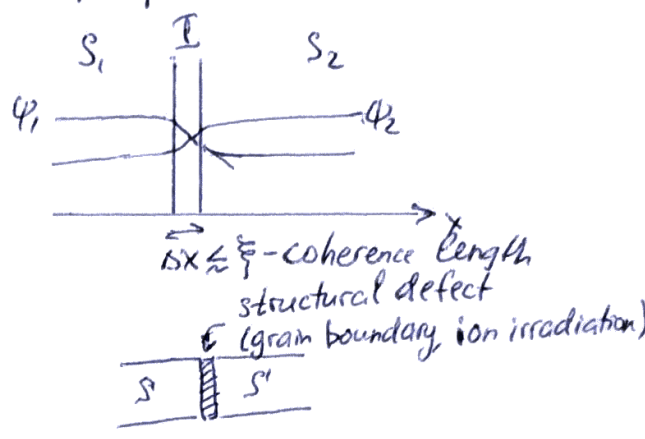 I
S₁ S₂
φ₁ φ₂
x
Δx ≲ ξ - coherence length
structural defect
(grain boundary, ion irradiation)
S S'